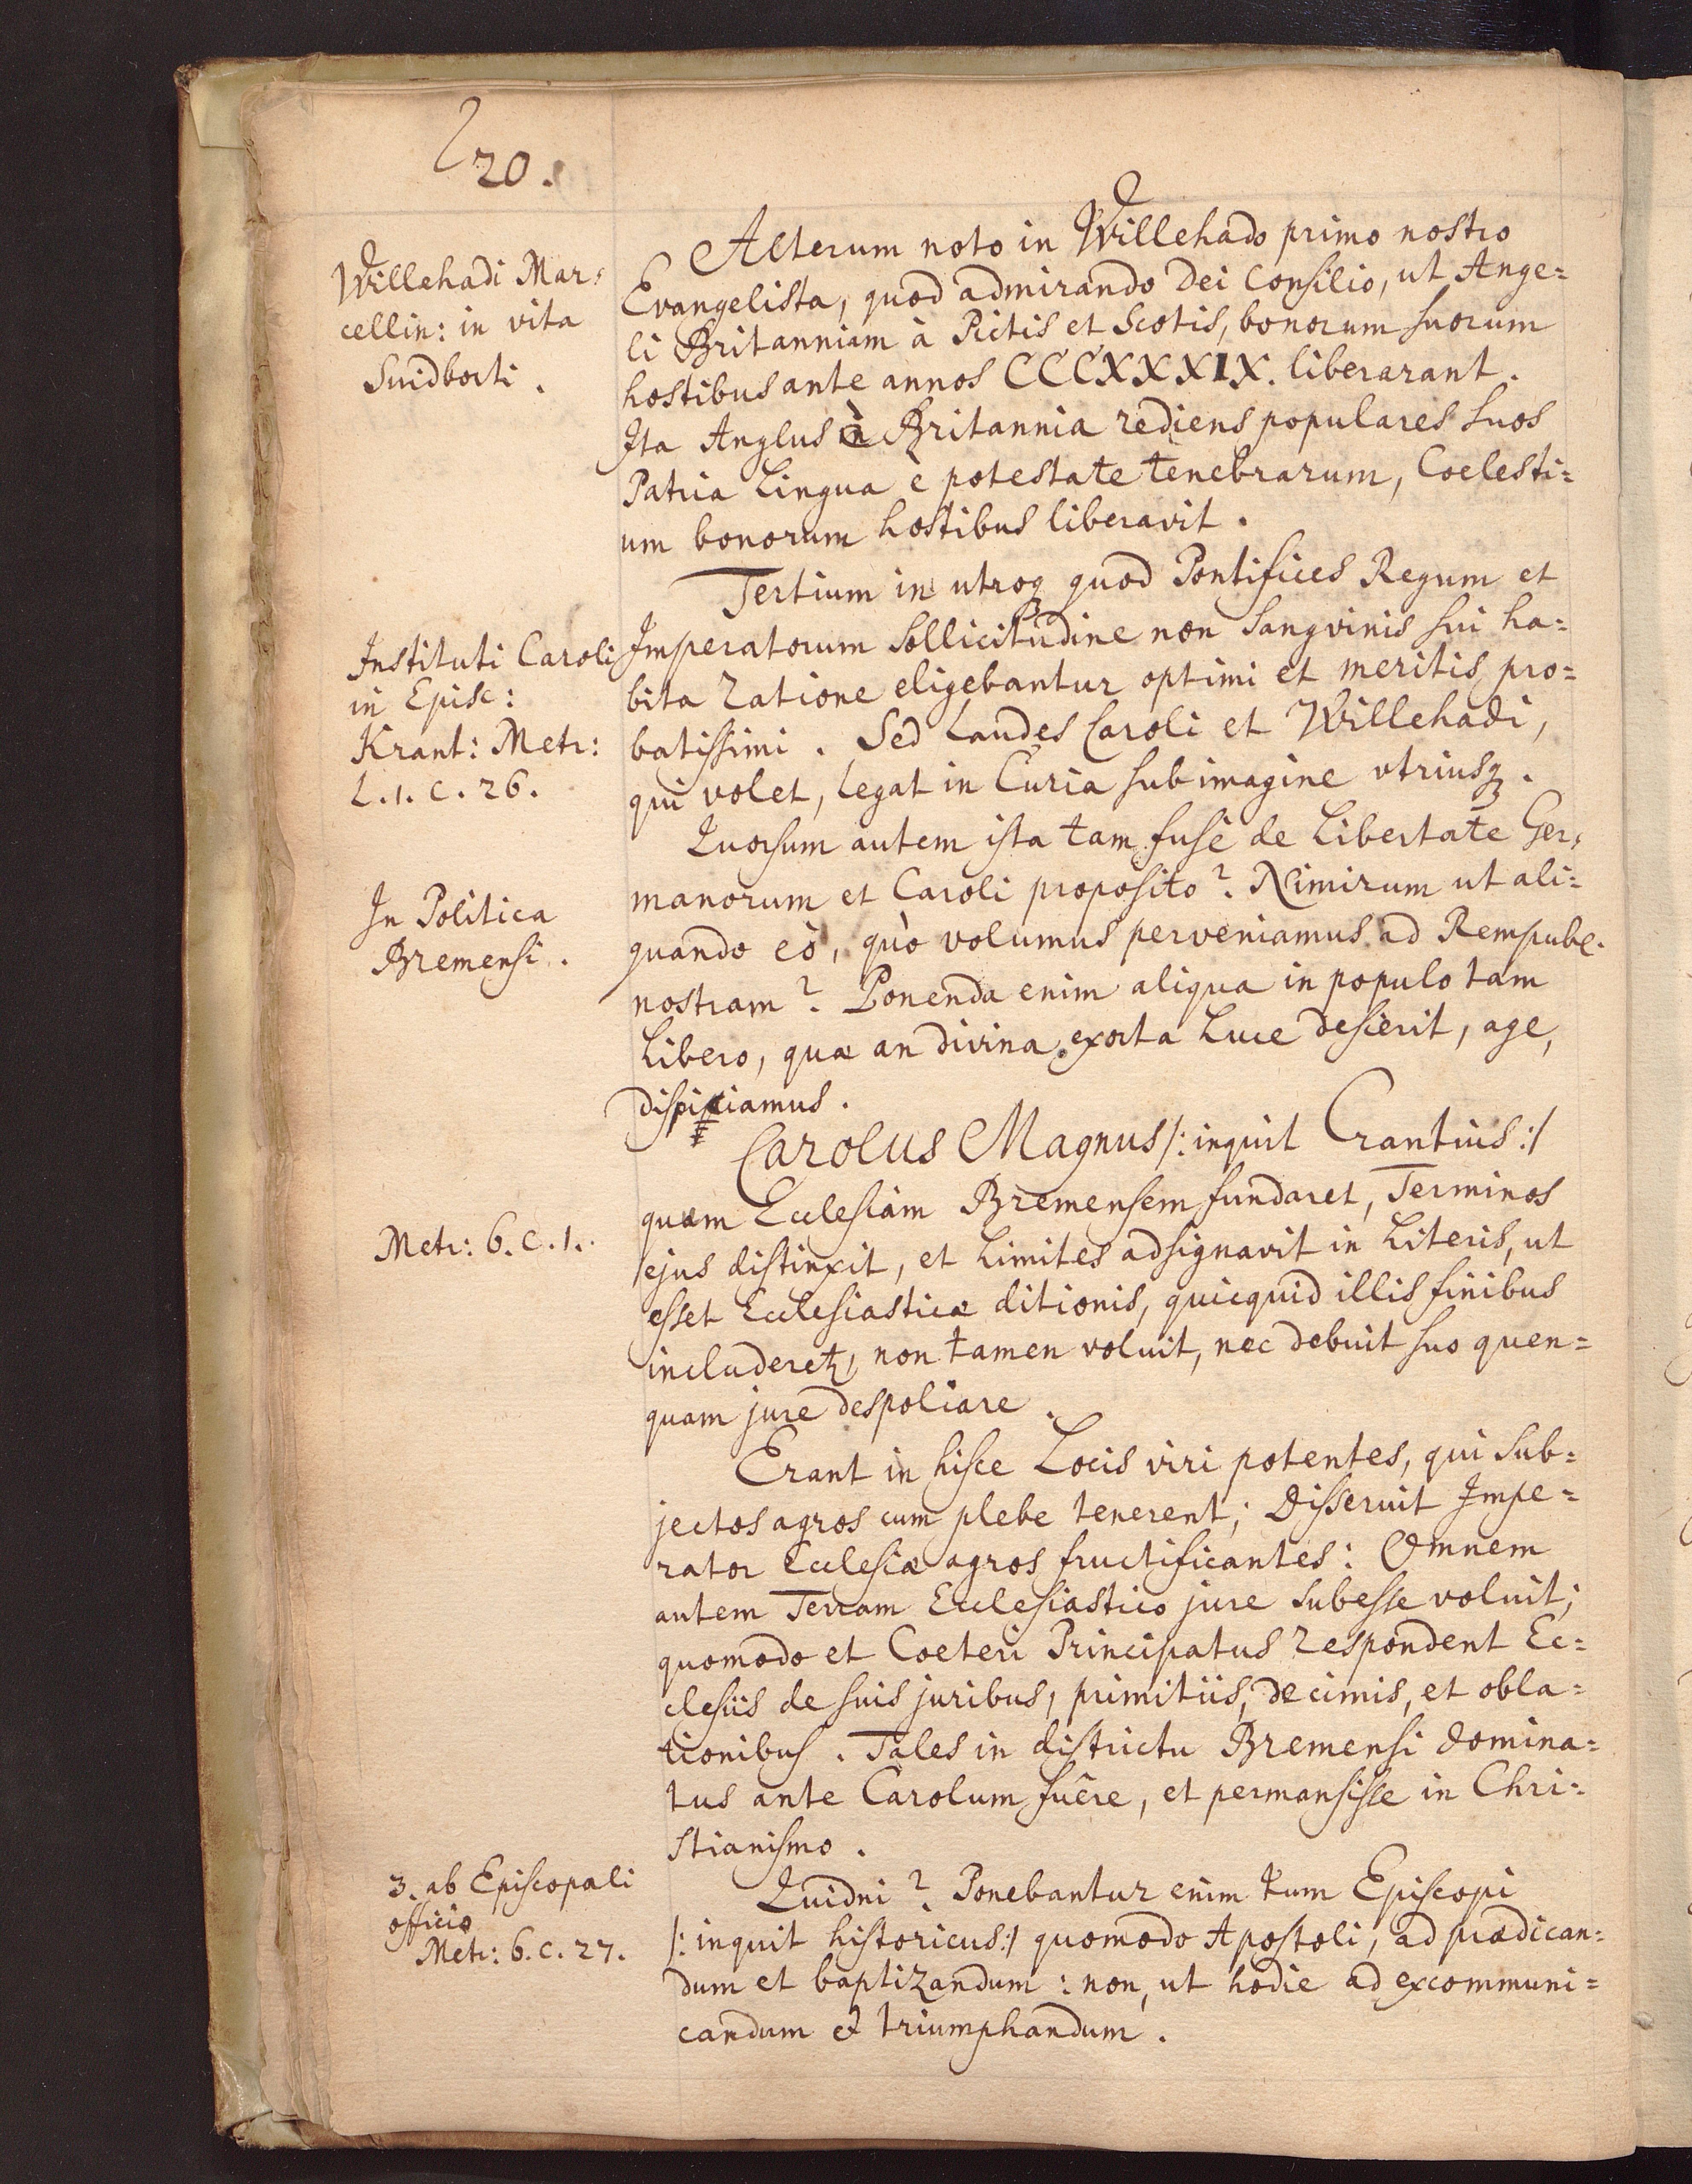 20.
Willehadi Mar=
cellin: in vita
Suidberti.
Alterum noto in Willehado primo nostro
Evangelista, quod admirando Dei Consilio, ut Ange=
li Britanniam à Pictis et Scotis, bonorum suorum
hostibus ante annos CCCXXXIX. liberarant.
Ita Anglus è Britannia rediens populares suos
Patria Lingua è potestate tenebrarum, Coelesti=
um bonorum hostibus liberavit.
Tertium in utroq quod Pontifices Regum et
Instituti Caroli
in Episc:
Krant: Metr:
L. 1. C. 26.
Imperatorum sollicitudine non sangvinis sui ha=
bita ratione eligebantur optimi et meritis pro=
batissimi. Sed Laudes Caroli et Willehadi,
qui volet, legat in Curia sub imagine utriusq.
Quorsum autem ista tam fusè de Libertate Ger=
manorum et Caroli proposito? Nimirum ut ali=
In Politica
Bremensi.
quando eò, quò volumus perveniamus ad Rempubl.
nostram? Ponenda enim aliqua in populo tam
Libero, quæ an divina exorta Luce desierit, age,
dispiciamus.
Carolus Magnus /: inquit Crantius :/
quum Ecclesiam Bremensem fundaret, Terminos
Metr: 6. C. 1.
ejus distinxit, et Limites adsignavit in Literis, ut
esset Ecclesiasticæ ditionis, quicquid illis finibus
includeret, non tamen voluit, nec debuit suo quen=
quam jure despoliare.
Erant in hisce Locis viri potentes, qui sub=
jectos agros cum plebe tenerent; Disseruit Impe=
rator Ecclesiæ agros fructificantes: Omnem
autem Terram Ecclesiastico jure subesse voluit;
quomodo et Coeteri Principatus respondent Ec=
clesiis de suis juribus, primitiis, decimis, et obla=
tionibus. Tales in districtu Bremensi domina=
tus ante Carolum fuêre, et permansisse in Chri=
stianismo.
3. ab Episcopali
officio
Metr: 6. C. 27.
Quidni? Ponebantur enim tum Episcopi
/: inquit historicus :/ quomodo Apostoli, ad prædican=
dum et baptizandum: non, ut hodie ad excommuni=
candum et triumphandum.